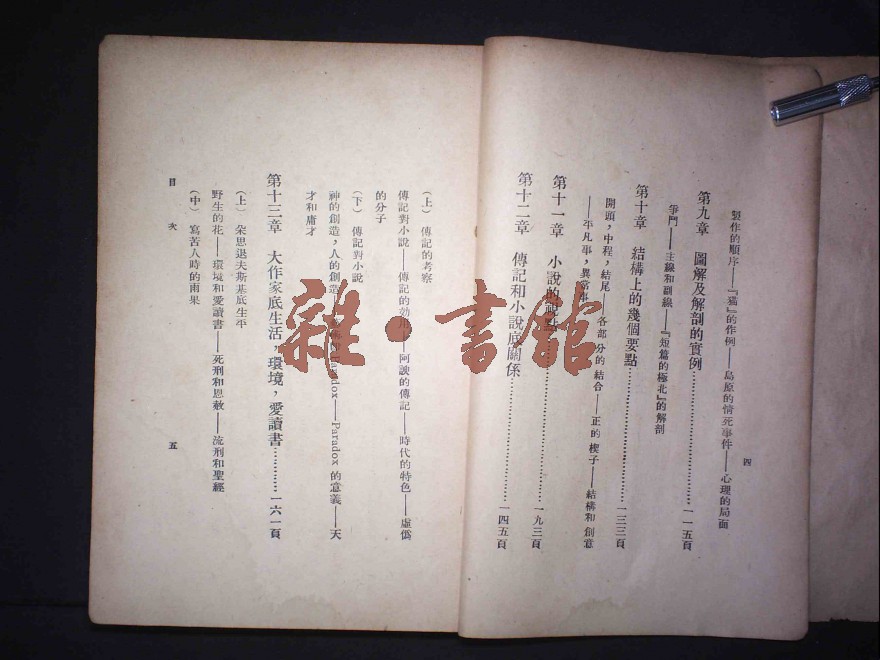 四
製作的順序——『猫』的作例——島原的情死事件——心理的局面
第九章　圖解及解剖的實例……………一一五頁
爭鬥——主線和副線——『短篇的極北』的解剖
第十章　結構上的幾個要點……………一三三頁
開頭，中程，結尾——各部分的結合——正的楔子——結構和創意
——平凡事，異常事
第十一章　小說的視點……………一九三頁
第十二章　傳記和小說底關係……………一四五頁
（上）　傳記的考察
傳記對小說——傳記的効用——阿諛的傳記——時代的特色——虛僞
的分子
（下）　傳記對小說
神的創造，人的創造——Paradox——Paradox 的意義——天
才和庸才
第十三章　大作家底生活，環境，愛讀書…………一六一頁
（上）　朶思退夫斯基底生平
野生的花——環境和愛讀書——死刑和恩赦——流刑和聖經
（中）　寫苦人時的雨果
目次
五
雜·書館